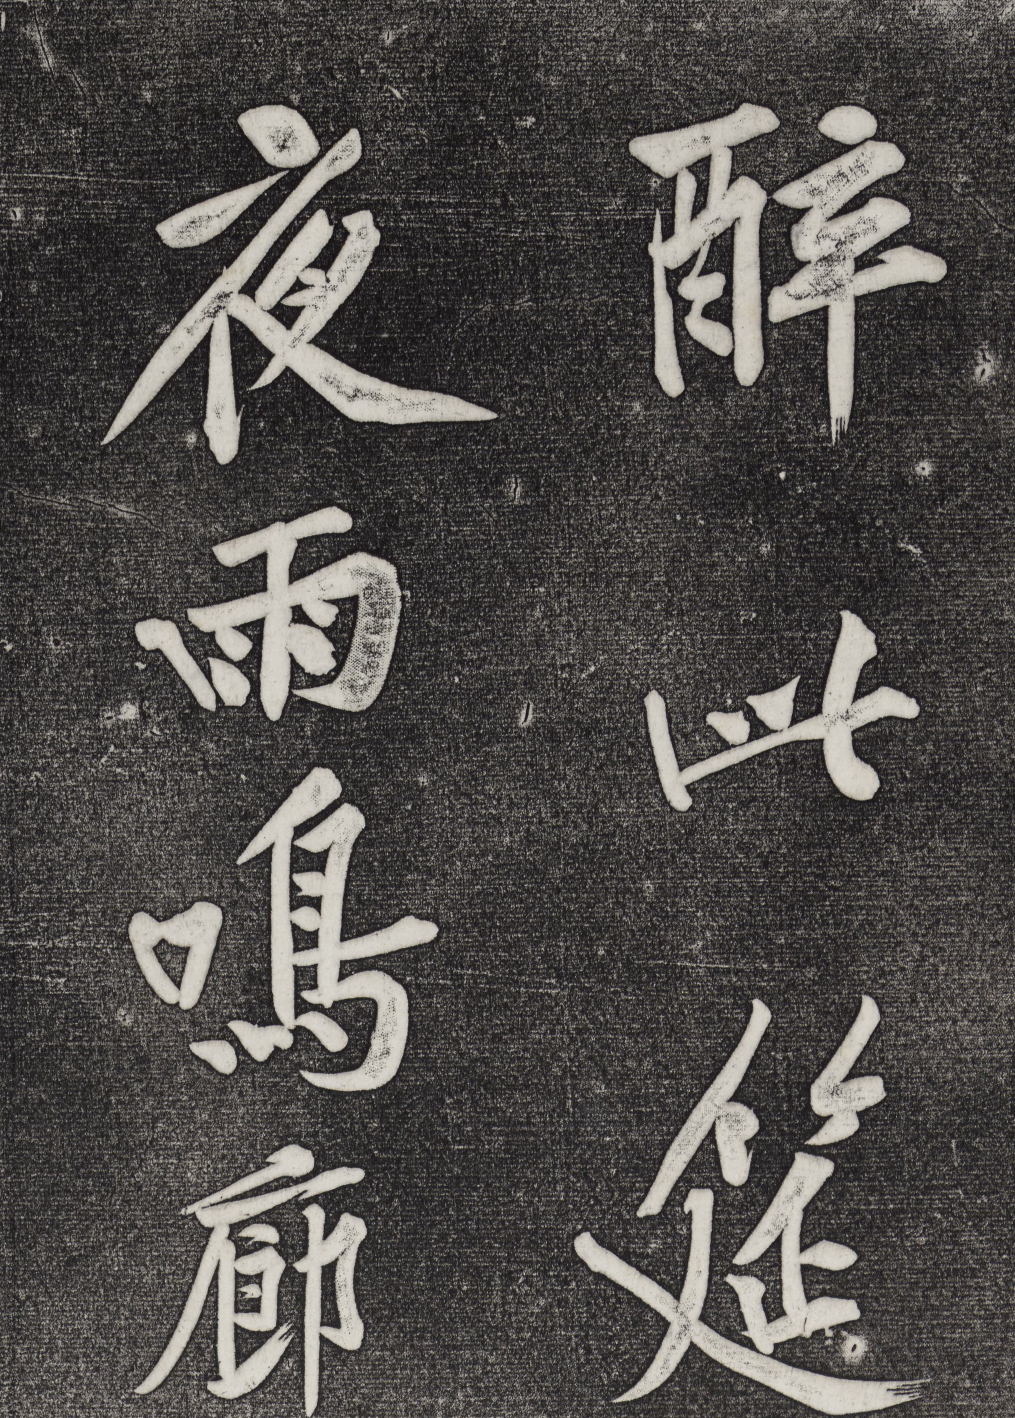 醉此筵
夜雨鳴廊